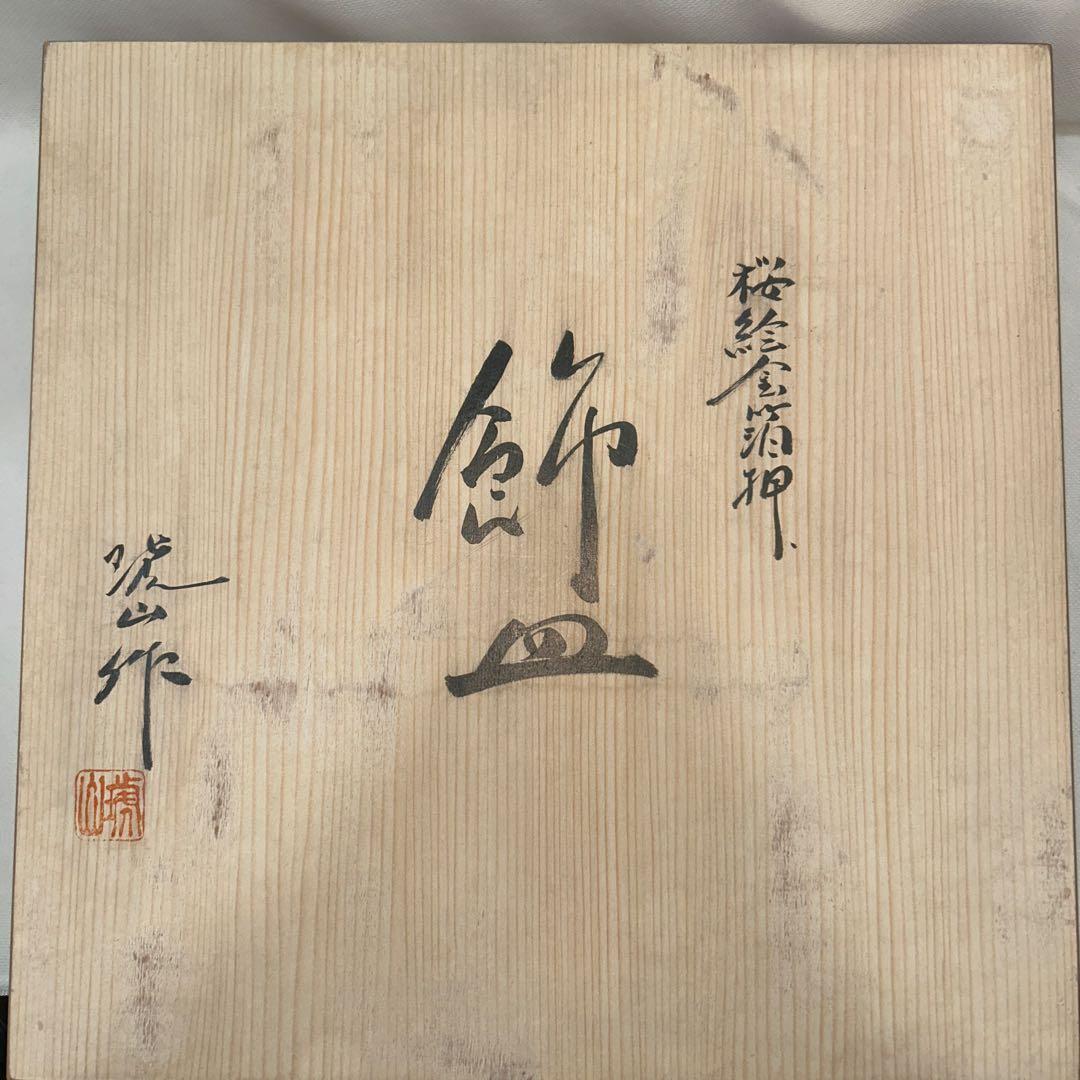 桜絵金箔押
飾皿
琥山作
琥山